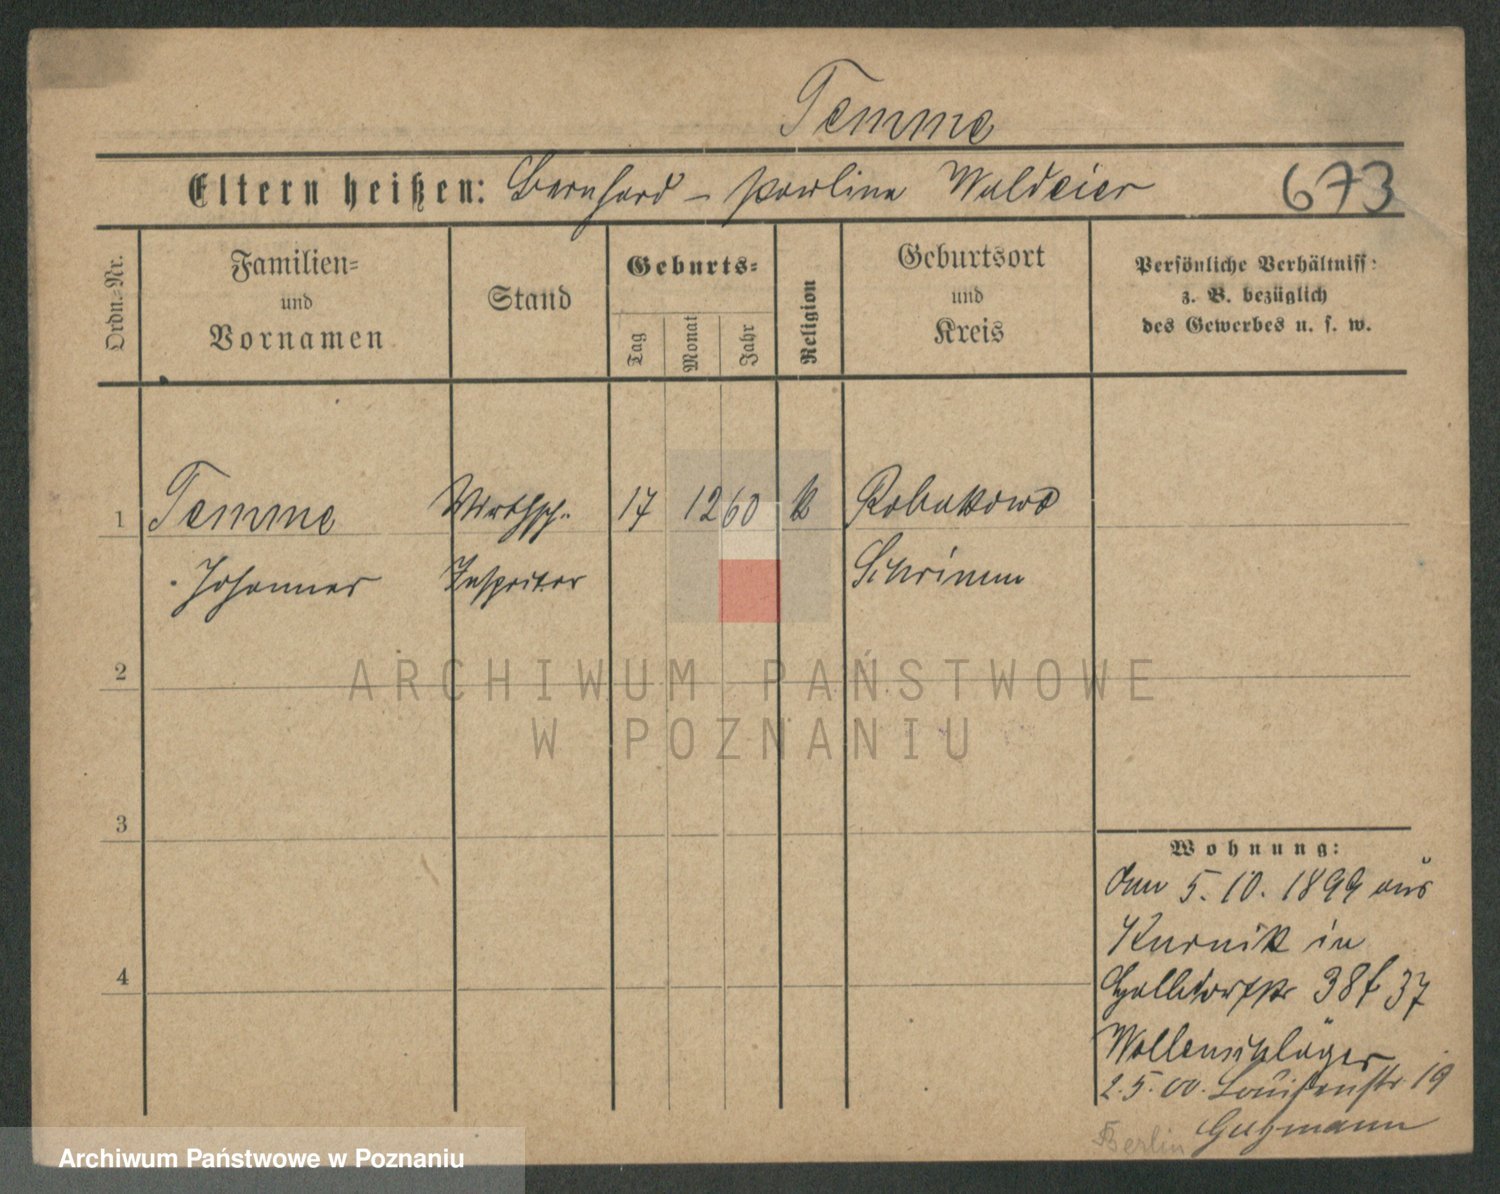 Temme
Eltern heißen: Bernhard – Paulina Waldeier 673
Ordn.=Nr.
Familien=
und
Vornamen
Stand
Geburts=
Tag
Monat
Jahr
Religion
Geburtsort
und
Kreis
Persönliche Verhältniss:
z. B. bezüglich
des Gewerbes u. s. w.
1 Temme Wirthsch. 17 12 60 k Robakowo
Johannes Inspector Schrimm
2
ARCHIWUM PAŃSTWOWE
W POZNANIU
3
4
Wohnung:
den 5. 10. 1899 aus
Kurnik in
38 37
Wollenschläger
2. 5. 00. Louisenstr 19
Gutzmann
Berlin
Archiwum Państwowe w Poznaniu